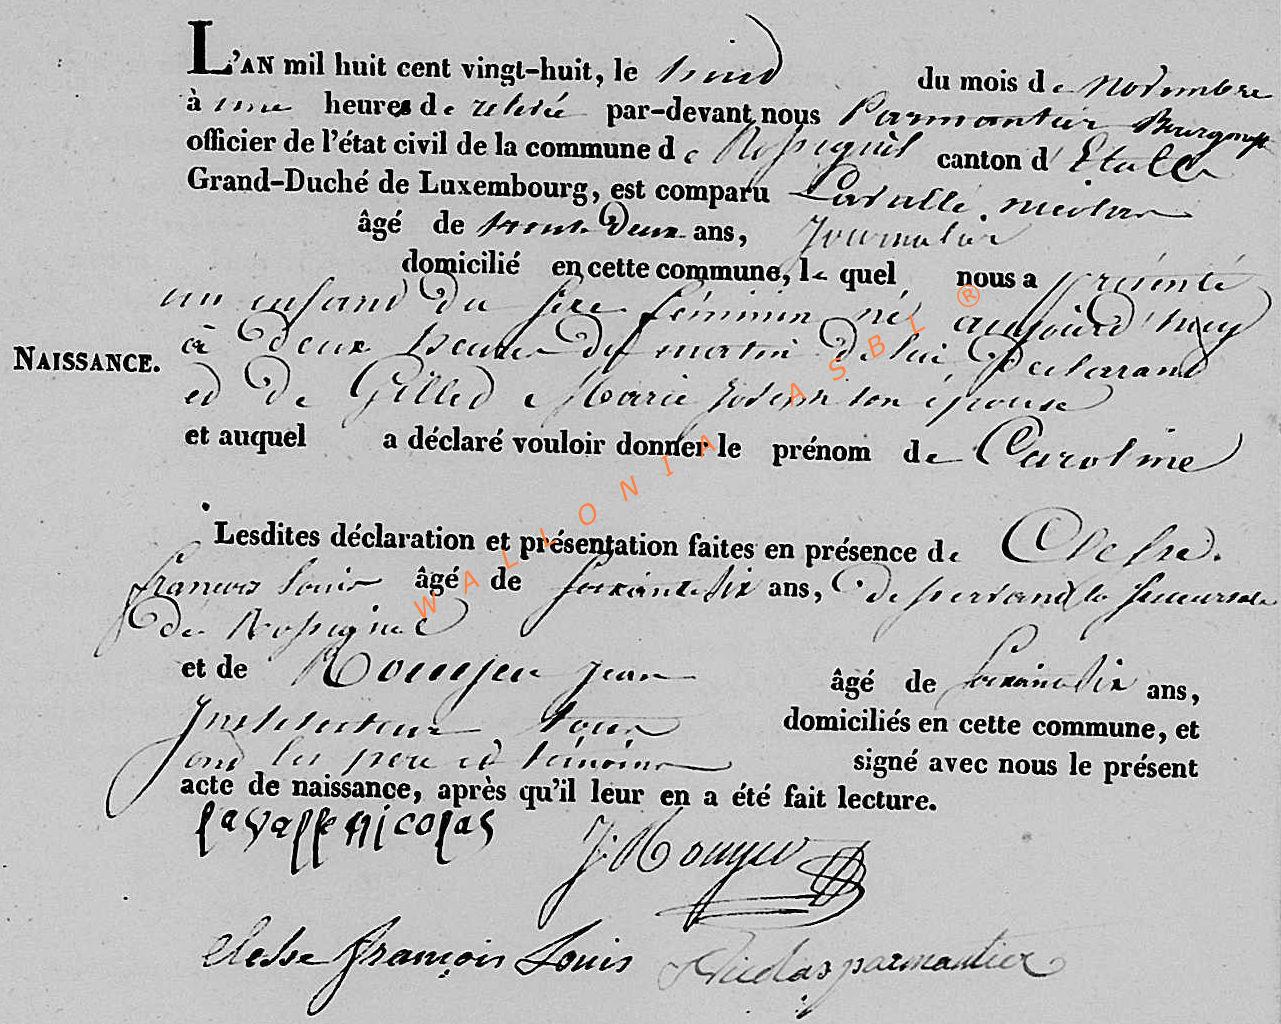 L'AN mil huit cent vingt-huit, le du mois de novembre
à une heures de relevée par-devant nous Parmantier Bourgmestre
officier de l'état civil de la commune de Rossignol canton d'Etalle
Grand-Duché de Luxembourg, est comparu Lavallé nicolas
âgé de trente Deux ans, Journalier
domicilié en cette commune, le quel nous a présenté
un enfant du sexe féminin né aujourd'huy
à deux heures du matin De lui Declarant
NAISSANCE.
et De Gilled Marie son épouse
et auquel a déclaré vouloir donner le prénom de Caroline
Lesdites déclaration et présentation faites en présence de Clesse
françois louis âgé de soixante six ans, Desservant la succursale
De Rossignol
et de Rouyer jean âgé de soixante six ans,
Instituteur, tous domiciliés en cette commune, et
ont les pere et témoins signé avec nous le présent
acte de naissance, après qu'il leur en a été fait lecture.
lavalle nicolas
J. Rouyer
Clesse françois Louis
Nicolas parmantier
WALLONIA ASBL ®